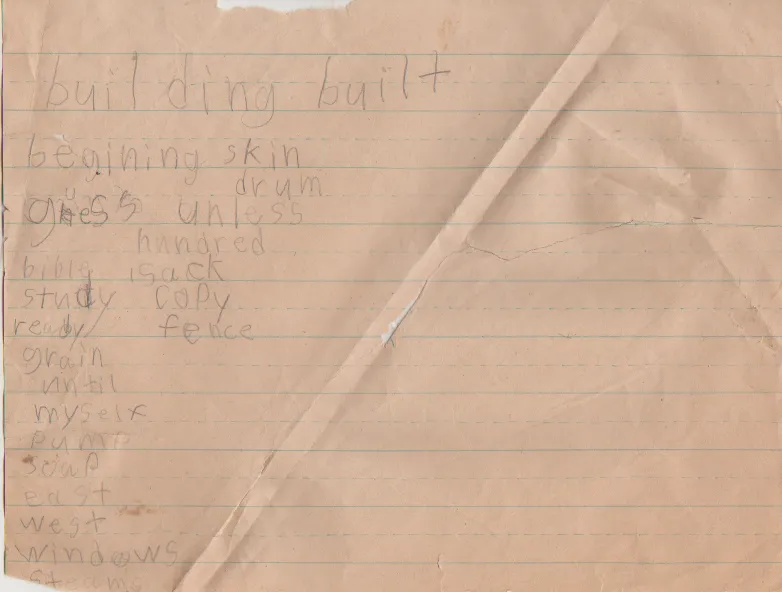 building built
begining skin
drum
guess unless
hundred
bible isack
study copy
ready fence
grain
until
myself
pump
soap
east
west
windows
steams